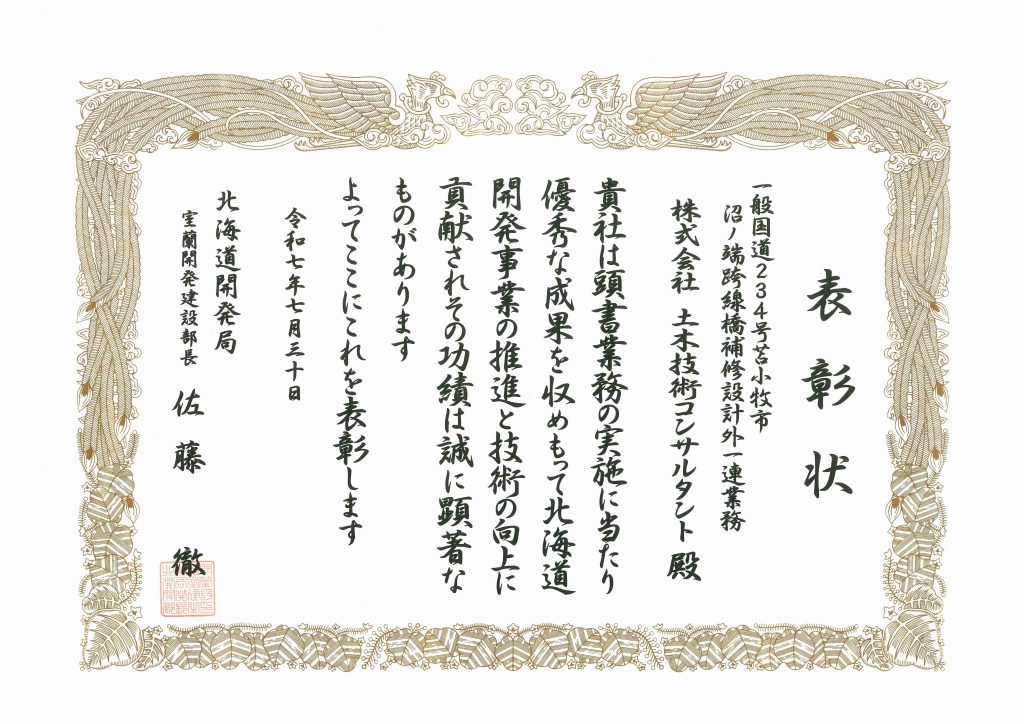 表彰状
一般国道234号苫小牧市
沼ノ端跨線橋補修設計外一連業務
株式会社 土木技術コンサルタント 殿
貴社は頭書業務の実施に当たり
優秀な成果を収めもって北海道
開発事業の推進と技術の向上に
貢献されその功績は誠に顕著な
ものがあります
よってここにこれを表彰します
令和七年七月三十日
北海道開発局
室蘭開発建設部長 佐藤 徹